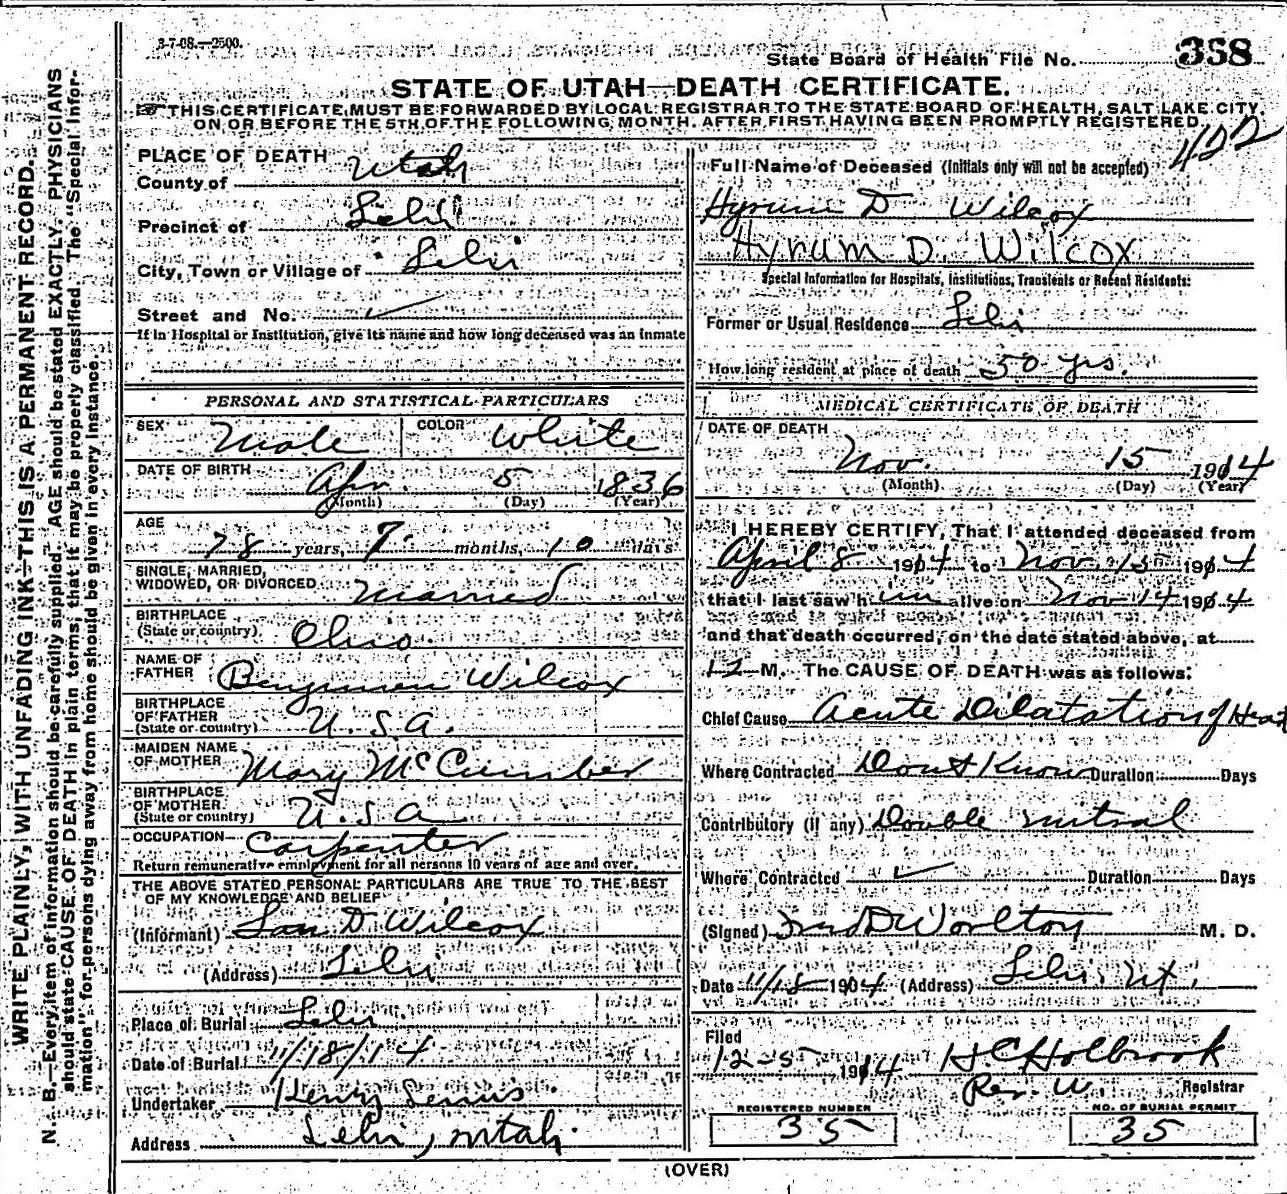 3-7-08.—2500.
State Board of Health File No. 358
STATE OF UTAH—DEATH CERTIFICATE.
THIS CERTIFICATE MUST BE FORWARDED BY LOCAL REGISTRAR TO THE STATE BOARD OF HEALTH, SALT LAKE CITY,
ON OR BEFORE THE 5TH OF THE FOLLOWING MONTH. AFTER FIRST HAVING BEEN PROMPTLY REGISTERED.
422
WRITE PLAINLY, WITH UNFADING INK—THIS IS A PERMANENT RECORD.
N. B.—Every item of information should be carefully supplied. AGE should be stated EXACTLY. PHYSICIANS
should state CAUSE OF DEATH in plain terms, that it may be properly classified. The "Special Infor-
mation" for persons dying away from home should be given in every instance.
PLACE OF DEATH
County of Utah
Precinct of Lehi
City, Town or Village of Lehi
Street and No.
If in Hospital or Institution, give its name and how long deceased was an inmate
PERSONAL AND STATISTICAL PARTICULARS
SEX Male COLOR White
DATE OF BIRTH Apr. 5 1836
(Month) (Day) (Year)
AGE 78 years, 7 months, 10 days
SINGLE, MARRIED,
WIDOWED, OR DIVORCED Married
BIRTHPLACE
(State or country) Ohio.
NAME OF
FATHER Benjamen Wilcox
BIRTHPLACE
OF FATHER
(State or country) U.S.A.
MAIDEN NAME
OF MOTHER Mary McCumber
BIRTHPLACE
OF MOTHER
(State or country) U.S.A
OCCUPATION Carpenter
Return remunerative employment for all persons 10 years of age and over.
THE ABOVE STATED PERSONAL PARTICULARS ARE TRUE TO THE BEST
OF MY KNOWLEDGE AND BELIEF
(Informant) D. Wilcox
(Address) Lehi
Place of Burial Lehi
Date of Burial 11/18/14
Undertaker Henry
Address Lehi, Utah.
Full Name of Deceased (Initials only will not be accepted)
Hyrum D Wilcox
Hyrum D. Wilcox
Special Information for Hospitals, Institutions, Transients or Recent Residents:
Former or Usual Residence Lehi
How long resident at place of death 50 yrs.
MEDICAL CERTIFICATE OF DEATH
DATE OF DEATH
Nov. 15 1914
(Month) (Day) (Year)
I HEREBY CERTIFY, That I attended deceased from
April 8 1914 to Nov. 15 1914
that I last saw him alive on Nov 14 1914
and that death occurred, on the date stated above, at
12 M. The CAUSE OF DEATH was as follows:
Chief Cause Acute Dilatation of Heart
Where Contracted Dont Know Duration Days
Contributory (if any) Double mitral
Where Contracted Duration Days
(Signed) Fred D Worlton M. D.
Date 11/18 1904 (Address) Lehi, Ut.
Filed
12-5- 1914 H C Holbrook
Registrar
REGISTERED NUMBER
35
NO. OF BURIAL PERMIT
35
(OVER)